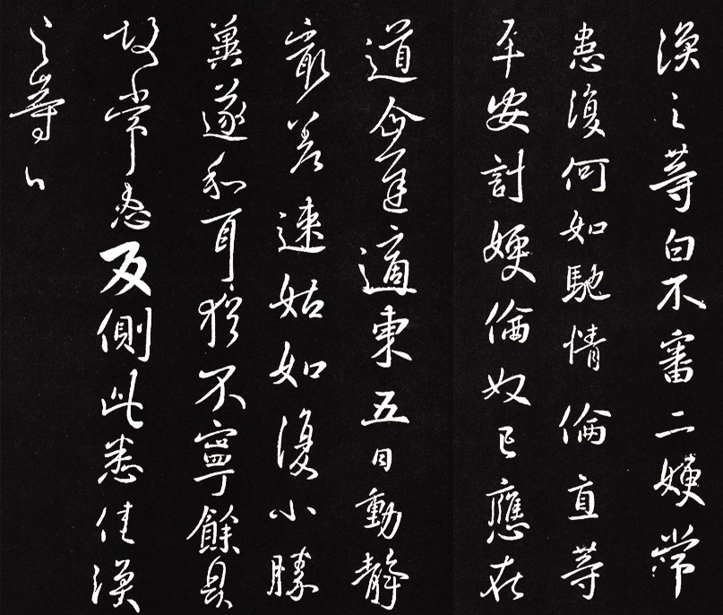 渙之等白不審二嫂常
患復何如馳情倫直等
平安計嫂倫奴已應在
道企遲適東五日動靜
最差速姑如復小勝
冀遂和耳猶不寧餘具
故常患反側此悉佳渙
之等白